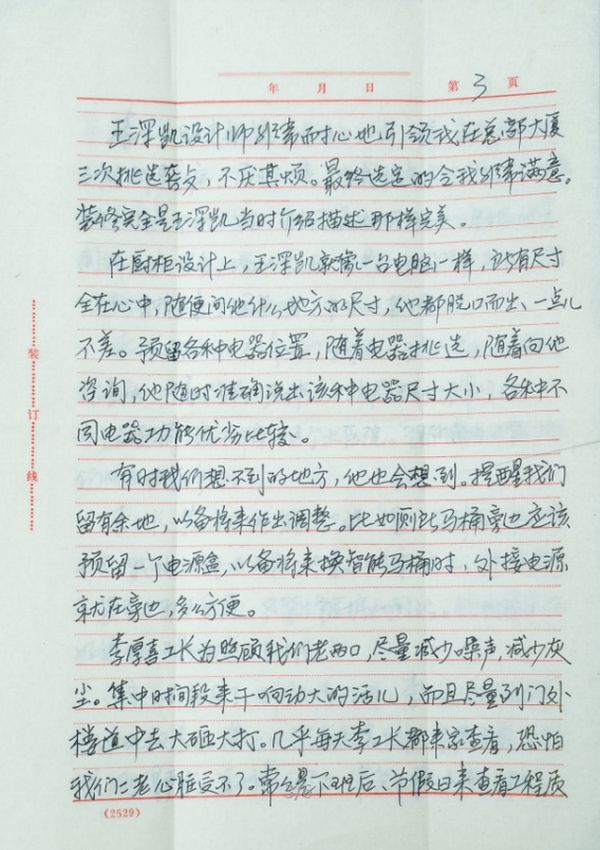 年 月 日 第 3 页
王深凯设计师非常耐心地引领我在总部大厦
三次挑选瓷砖，不厌其烦。最终选定的令我非常满意。
装修完全是王深凯当时介绍描述那样完美。
在厨柜设计上，王深凯就像一台电脑一样，所有尺寸
全在心中，随便问他什么地方的尺寸，他都脱口而出、一点儿
不差。预留各种电器位置，随着电器挑选，随着向他
咨询，他随时准确说出该种电器尺寸大小，各种不
同电器功能优劣比较。
有时我们想不到的地方，他也会想到。提醒我们
留有余地，以备将来作出调整。比如厕所马桶旁边应该
预留一个电源盒，以备将来换智能马桶时，外接电源
就在旁边，多么方便。
李厚喜工长为照顾我们老两口，尽量减少噪声，减少灰
尘。集中时间段来干响动大的活儿，而且尽量到门外
楼道中去大砸大打。几乎每天李工长都来家查看，恐怕
我们二老心脏受不了。常常是下班后、节假日来查看工程质
装订线
(2529)